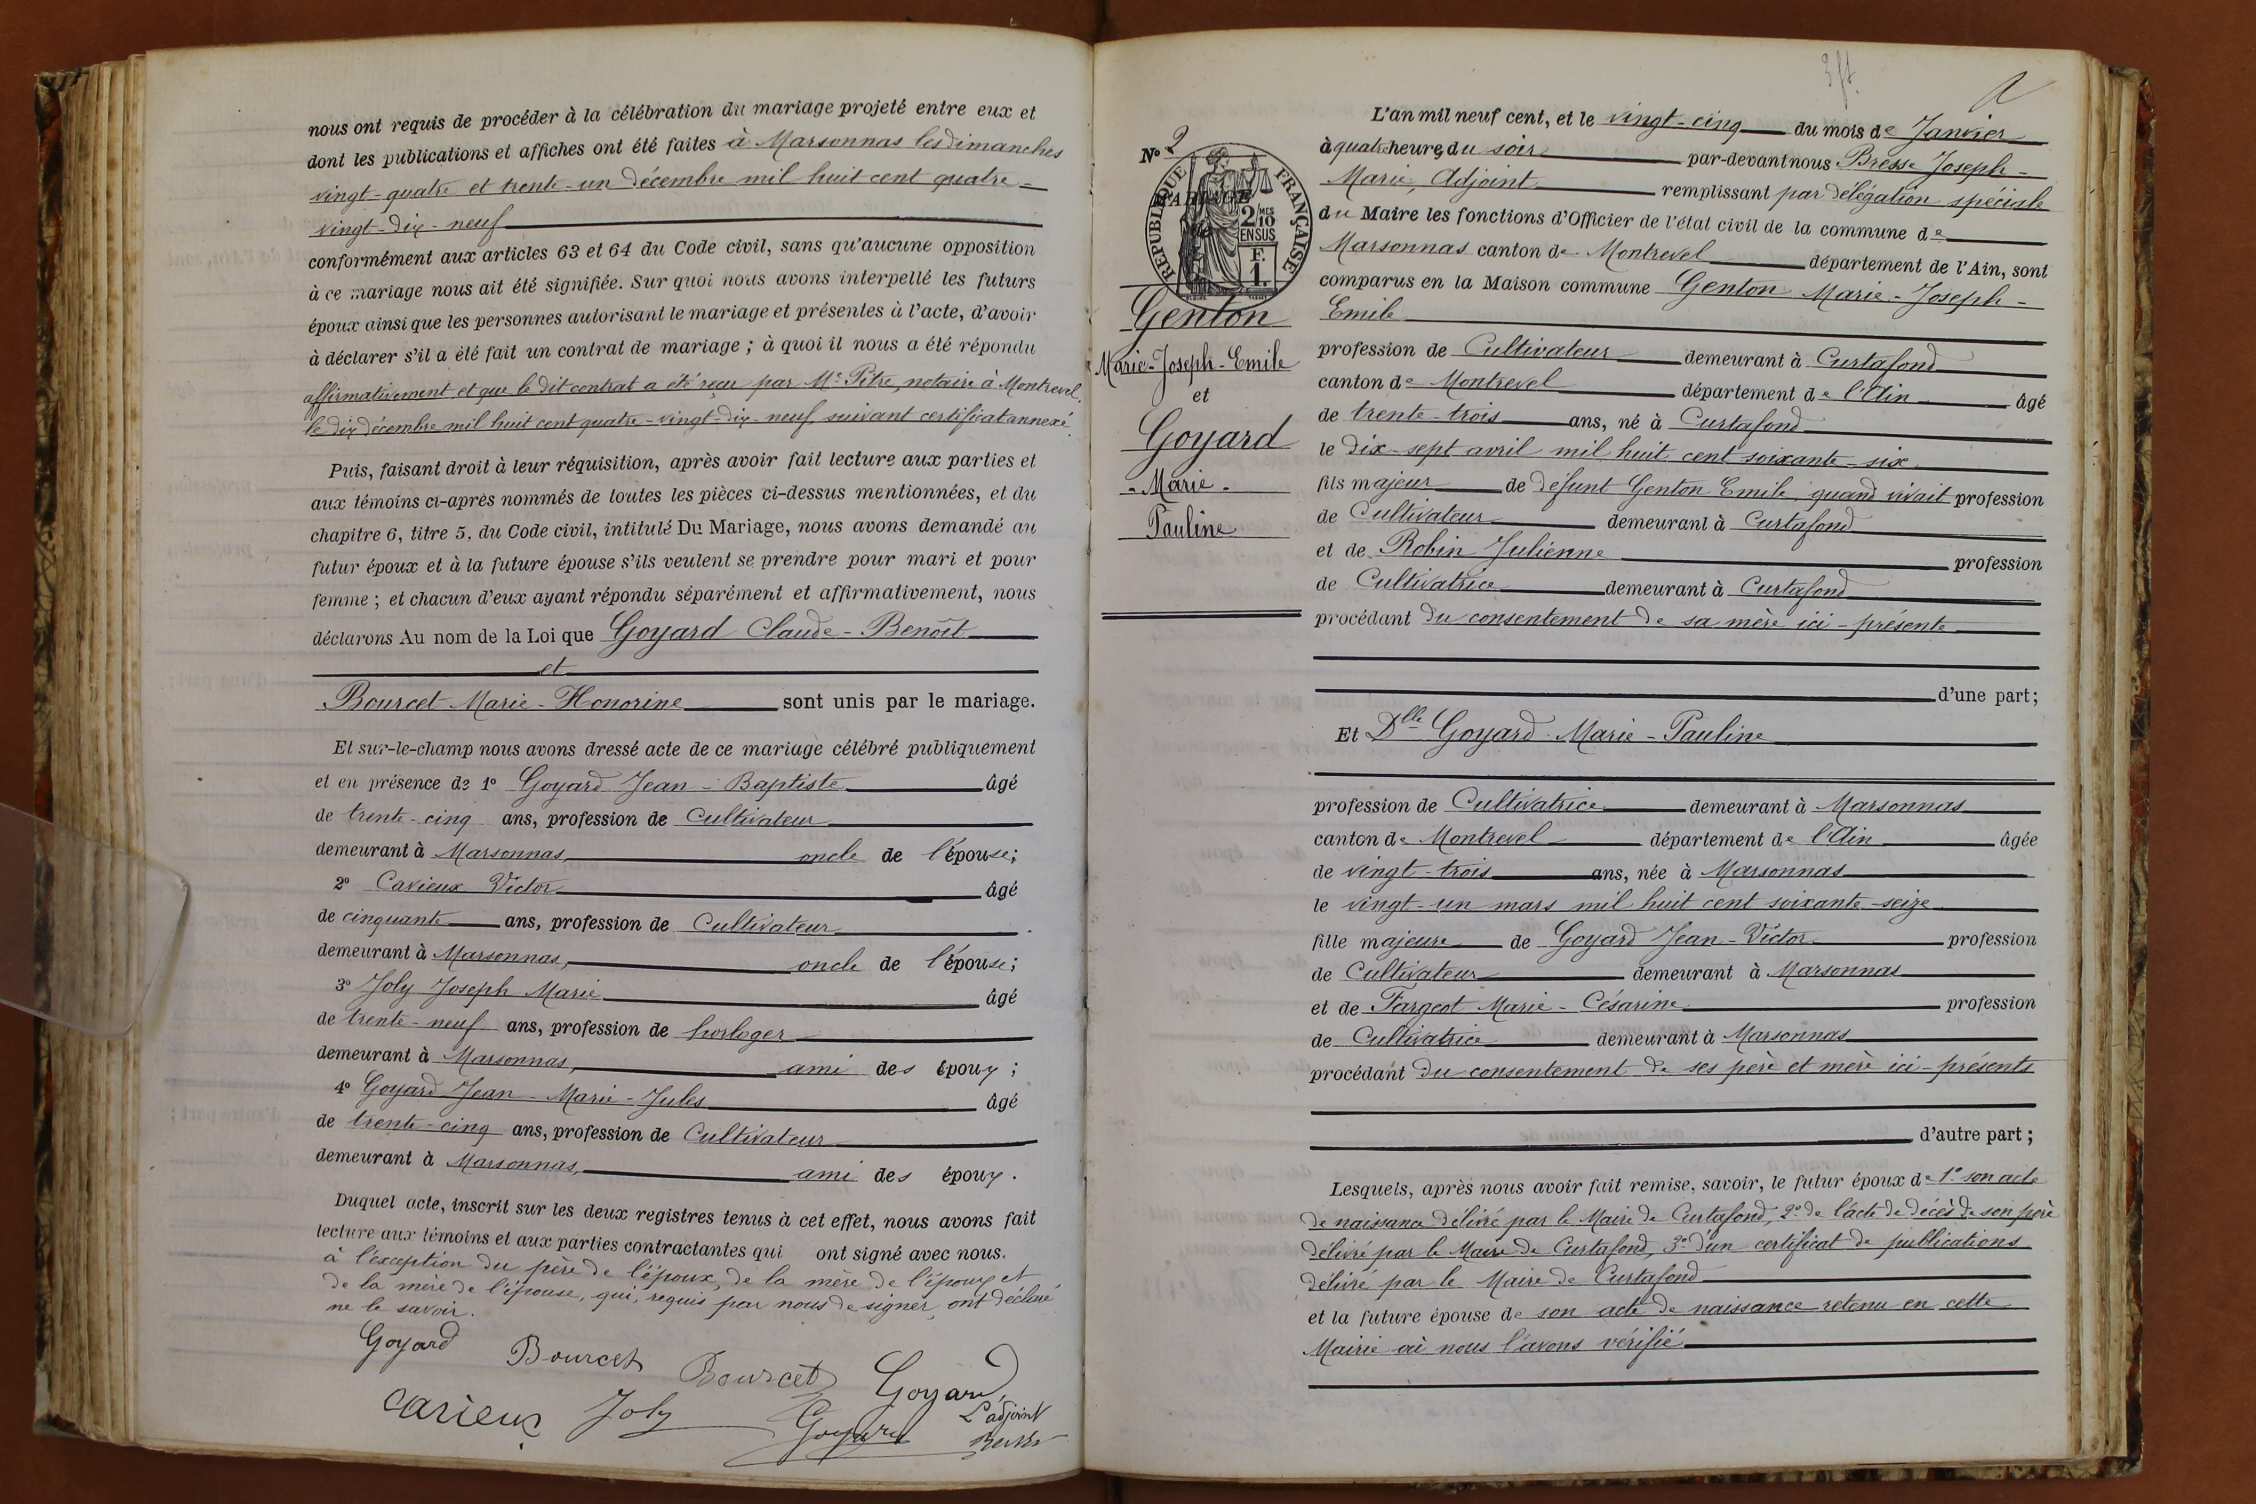 nous ont requis de procéder à la célébration du mariage projeté entre eux et
dont les publications et affiches ont été faites à Marsonnas les dimanches
vingt-quatre et trente-un décembre mil huit cent quatre-
vingt-dix-neuf
conformément aux articles 63 et 64 du Code civil, sans qu'aucune opposition
à ce mariage nous ait été signifiée. Sur quoi nous avons interpellé les futurs
époux ainsi que les personnes autorisant le mariage et présentes à l'acte, d'avoir
à déclarer s'il a été fait un contrat de mariage ; à quoi il nous a été répondu
affirmativement et que le dit contrat a été reçu par Me Pitre, notaire à Montrevel,
le dix décembre mil huit cent quatre-vingt-dix-neuf, suivant certificat annexé.
Puis, faisant droit à leur réquisition, après avoir fait lecture aux parties et
aux témoins ci-après nommés de toutes les pièces ci-dessus mentionnées, et du
chapitre 6, titre 5, du Code civil, intitulé Du Mariage, nous avons demandé au
futur époux et à la future épouse s'ils veulent se prendre pour mari et pour
femme ; et chacun d'eux ayant répondu séparément et affirmativement, nous
déclarons Au nom de la Loi que Goyard Claude-Benoît
et
Bourcet Marie-Honorine sont unis par le mariage.
Et sur-le-champ nous avons dressé acte de ce mariage célébré publiquement
et en présence de 1° Goyard Jean-Baptiste âgé
de trente-cinq ans, profession de Cultivateur
demeurant à Marsonnas, oncle de l'épouse;
2° Carieux Victor âgé
de cinquante ans, profession de Cultivateur
demeurant à Marsonnas, oncle de l'épouse;
3° Joly Joseph Marie âgé
de trente-neuf ans, profession de horloger
demeurant à Marsonnas, ami des époux ;
4° Goyard Jean-Marie-Jules âgé
de trente-cinq ans, profession de Cultivateur
demeurant à Marsonnas, ami des époux.
Duquel acte, inscrit sur les deux registres tenus à cet effet, nous avons fait
lecture aux témoins et aux parties contractantes qui ont signé avec nous.
à l'exception du père de l'époux, de la mère de l'époux et
de la mère de l'épouse, qui, requis par nous de signer, ont déclaré
ne le savoir.
Goyard Bourcet Bourcet Goyard
Carieux Joly Goyard L'adjoint
N° 2
REPUBLIQUE FRANÇAISE
2/10 MES
EN SUS
F.
1.
Genton
Marie-Joseph-Emile
et
Goyard
-Marie-
Pauline
L'an mil neuf cent, et le vingt-cinq du mois de Janvier
à quatre heures du soir par-devant nous Bresse Joseph-
Marie, Adjoint remplissant par délégation spéciale
du Maire les fonctions d'Officier de l'état civil de la commune de
Marsonnas canton de Montrevel département de l'Ain, sont
comparus en la Maison commune Genton Marie-Joseph-
Emile
profession de Cultivateur demeurant à Curtafond
canton de Montrevel département de l'Ain âgé
de trente-trois ans, né à Curtafond
le dix-sept avril mil huit cent soixante-six
fils majeur de défunt Genton Emile, quand vivait profession
de Cultivateur demeurant à Curtafond
et de Robin Julienne profession
de Cultivatrice demeurant à Curtafond
procédant du consentement de sa mère ici-présente
d'une part;
Et Dlle Goyard Marie-Pauline
profession de Cultivatrice demeurant à Marsonnas
canton de Montrevel département de l'Ain âgée
de vingt-trois ans, née à Marsonnas
le vingt-un mars mil huit cent soixante-seize
fille majeure de Goyard Jean-Victor profession
de Cultivateur demeurant à Marsonnas
et de Fargeot Marie-Césarine profession
de Cultivatrice demeurant à Marsonnas
procédant du consentement de ses père et mère ici-présents
d'autre part ;
Lesquels, après nous avoir fait remise, savoir, le futur époux de 1° son acte
de naissance délivré par le Maire de Curtafond, 2° de l'acte de décès de son père
délivré par le Maire de Curtafond, 3° d'un certificat de publications
délivré par le Maire de Curtafond
et la future épouse de son acte de naissance retenu en cette
Mairie où nous l'avons vérifié